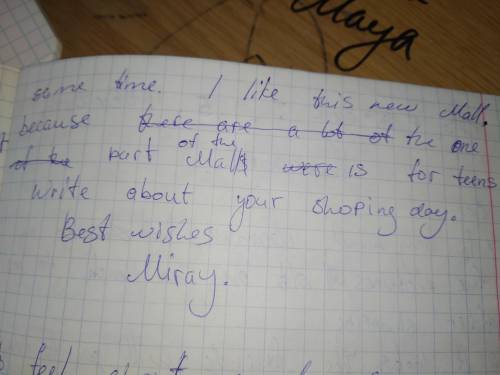 Maya
some time. I like this new Mall.
because there are a lot of the one
of the part of the Malls were is for teens
Write about your shoping day.
Best wishes
Miray.
feel